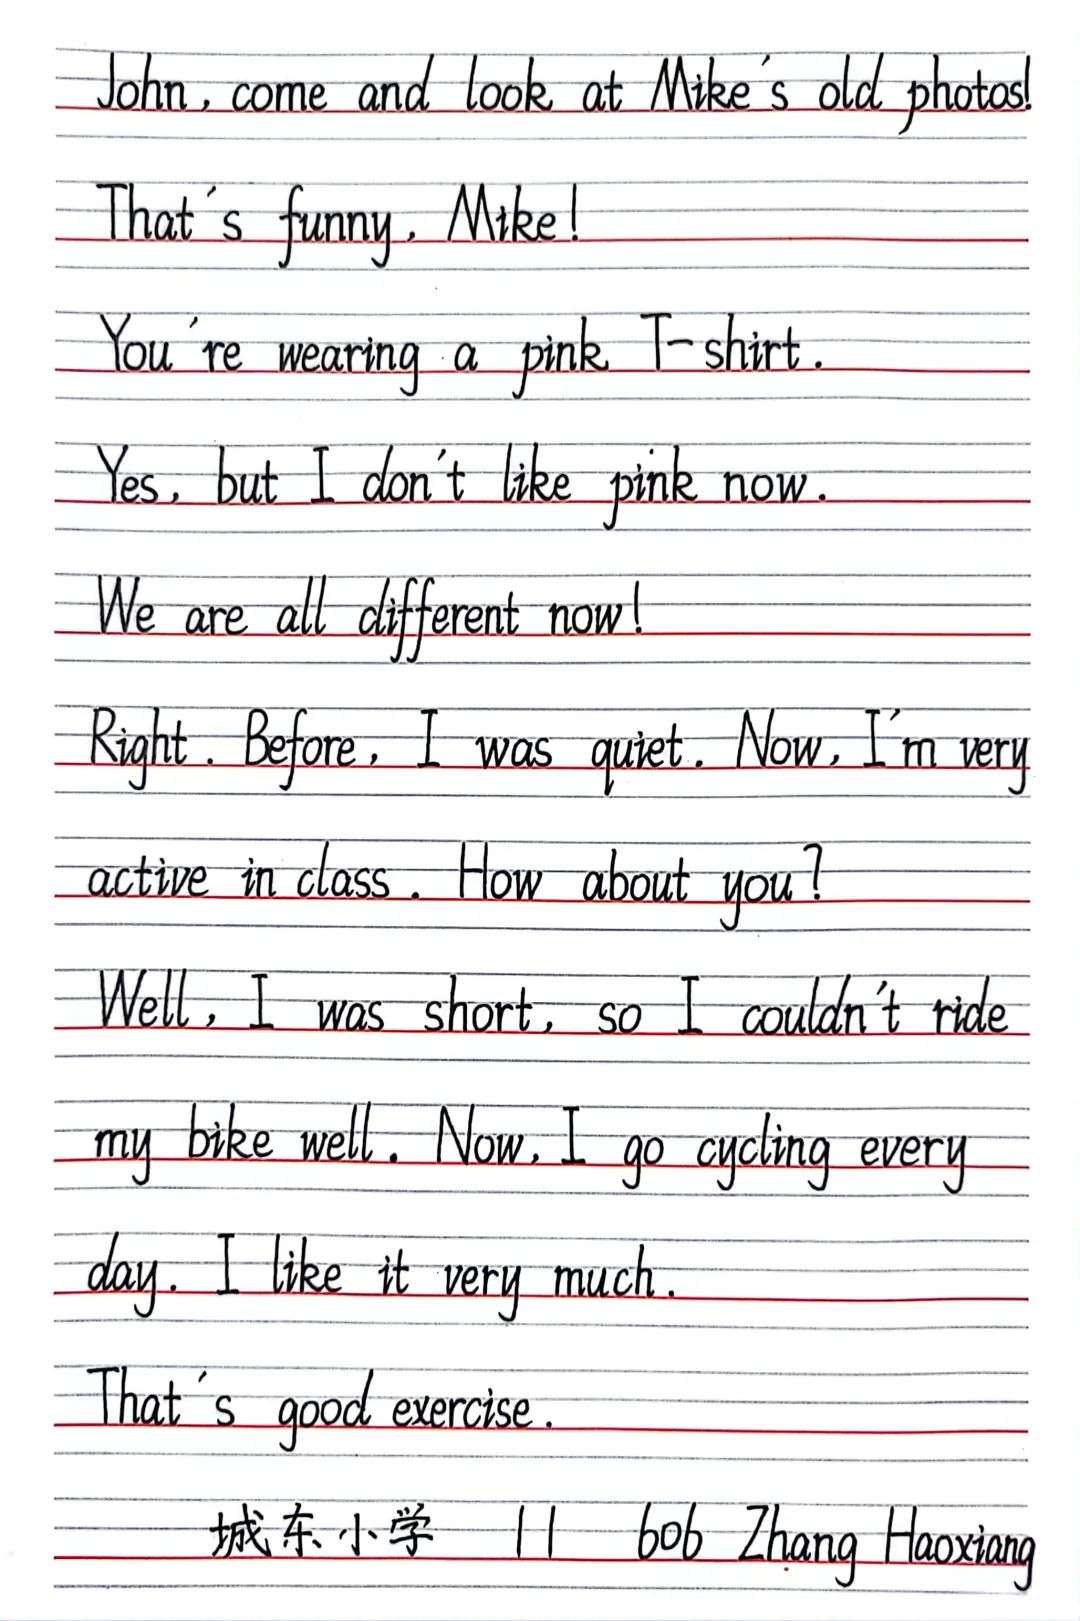 John, come and look at Mike's old photos!
That's funny, Mike!
You're wearing a pink T-shirt.
Yes, but I don't like pink now.
We are all different now!
Right. Before, I was quiet. Now, I'm very
active in class. How about you?
Well, I was short, so I couldn't ride
my bike well. Now, I go cycling every
day. I like it very much.
That's good exercise.
城东小学 11 606 Zhang Haoxiang